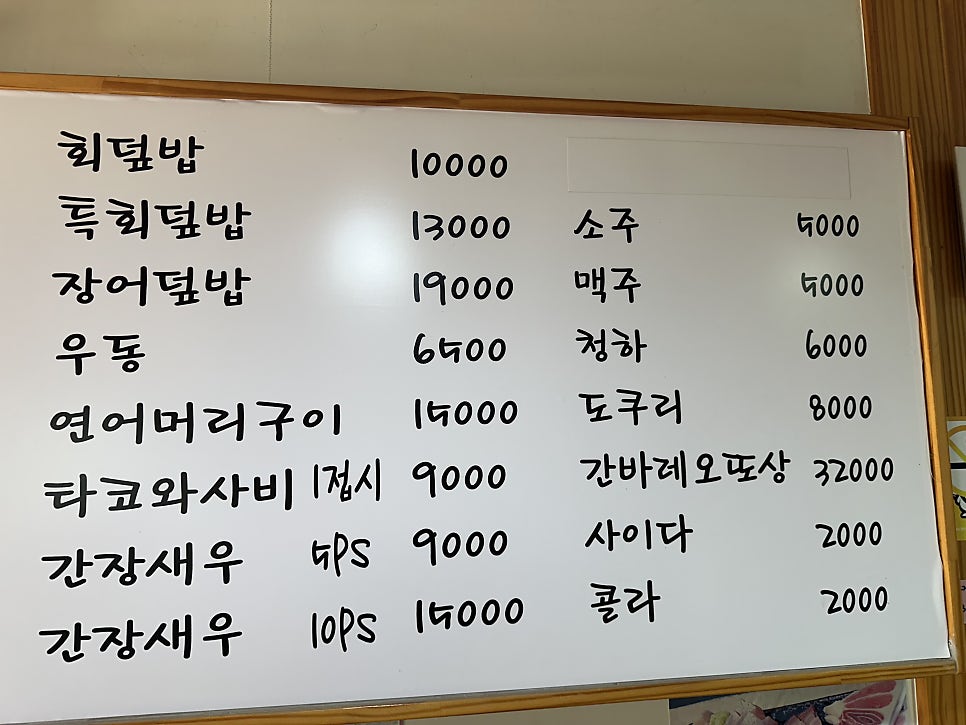 회덮밥 10000
특회덮밥 13000
장어덮밥 19000
우동 6500
연어머리구이 15000
타코와사비 1접시 9000
간장새우 5PS 9000
간장새우 10PS 15000
소주 5000
맥주 5000
청하 6000
도쿠리 8000
간바레오또상 32000
사이다 2000
콜라 2000